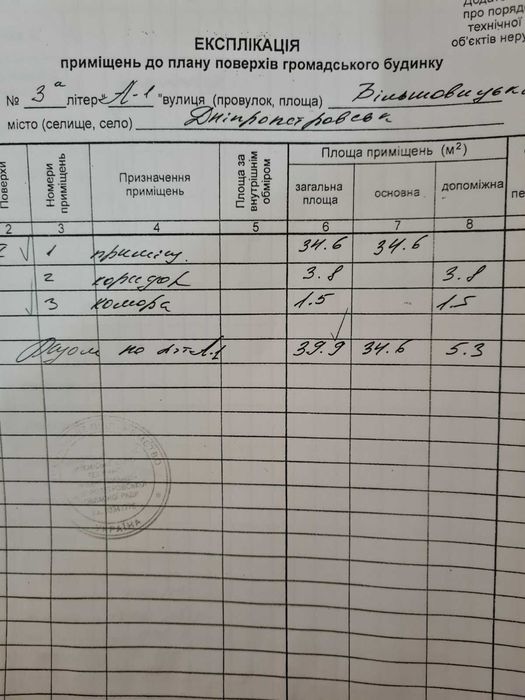 Додато
про поряд
технічної
об'єктів неру
ЕКСПЛІКАЦІЯ
приміщень до плану поверхів громадського будинку
№ 3а літера "А-1" вулиця (провулок, площа) Більшовицька
місто (селище, село) Дніпропетровськ
Поверхи Номери приміщень Призначення приміщень Площа за внутрішнім обміром Площа приміщень (м²)
загальна площа основна допоміжна
2 3 4 5 6 7 8
1 приміщ. 34.6 34.6
2 коридор 3.8 3.8
3 комора 1.5 - 1.5
Разом по літ А-1 39.9 34.6 5.3
УКРАЇНА